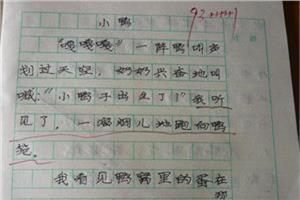 92
小鸭
“嘎嘎嘎”一阵鸭叫声
划过天空，奶奶兴奋地叫
喊：“小鸭子出生了！”我听
见了，一溜烟儿地跑向鸭
笼。
我看见鸭窝里的蛋在
那